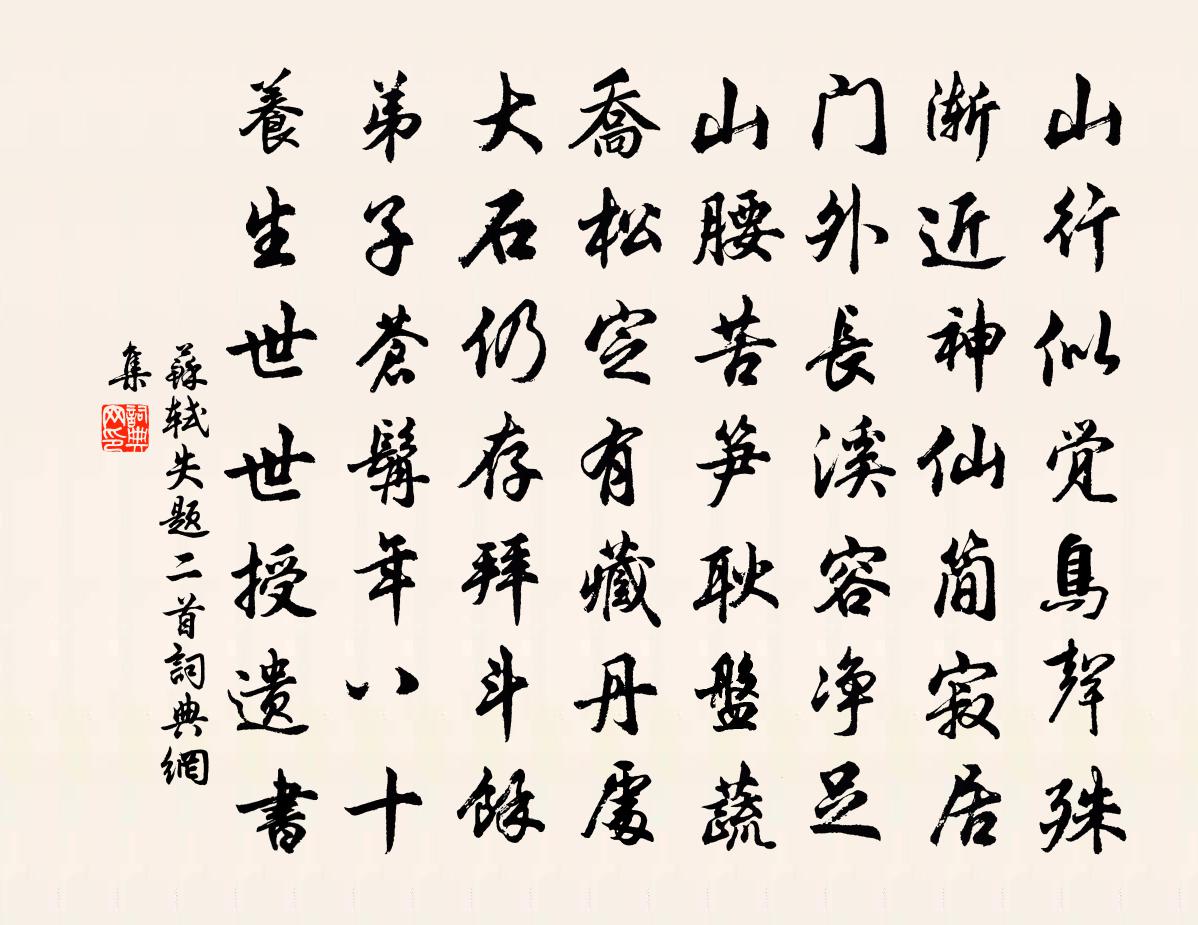 山行似觉鳥聲殊
渐近神仙简寂居
门外長溪容净足
山腰苦笋耿盤蔬
喬松定有藏丹處
大石仍存拜斗餘
弟子蒼髯年八十
養生世世授遺書
蘇軾失题二首詞典網
集
詞典
网印